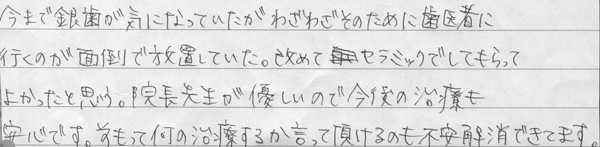 今まで銀歯が気になっていたがわざわざそのために歯医者に
行くのが面倒で放置していた。改めてセラミックでしてもらって
よかったと思う。院長先生が優しいので今後の治療も
安心です。前もって何の治療するか言って頂けるのも不安解消できてます。